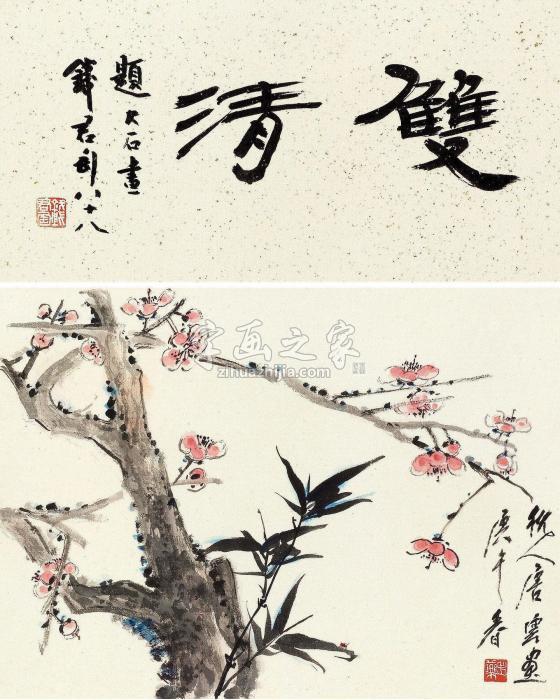 雙清
題大石畫
錢君匋八十八
字画之家
zihuazhijia.com
杭人唐雲畫
庚午春